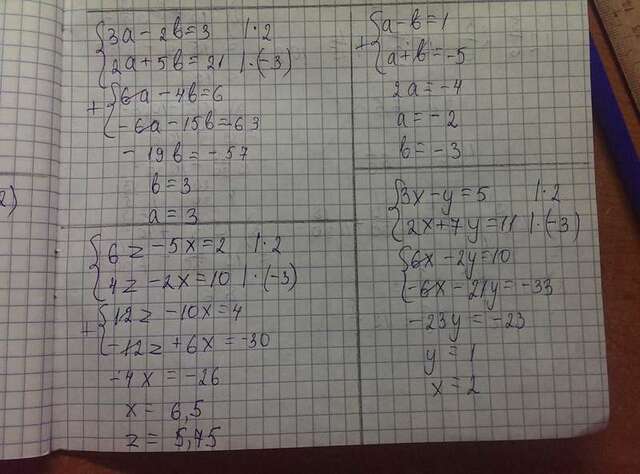 3a - 2b = 3 | · 2
2a + 5b = 21 | · (-3)
+ 6a - 4b = 6
-6a - 15b = 63
- 19b = - 57
b = 3
a = 3
6z - 5x = 2 | · 2
4z - 2x = 10 | · (-3)
+ 12z - 10x = 4
-12z + 6x = -30
-4x = -26
x = 6,5
z = 5,75
+ a - b = 1
a + b = -5
2a = -4
a = -2
b = -3
3x - y = 5 | · 2
2x + 7y = 11 | · (-3)
6x - 2y = 10
-6x - 21y = -33
-23y = -23
y = 1
x = 2
2)